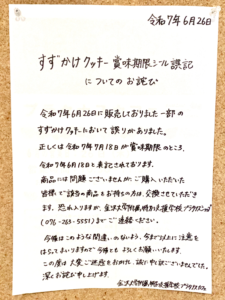 令和7年6月26日
すずかけクッキー賞味期限シール誤記
についてのお詫び
令和7年6月26日に販売しておりました一部の
すずかけクッキーにおいて誤りがありました。
正しくは令和7年7月18日が賞味期限のところ、
令和7年6月18日と表記されております。
商品には問題ございませんが、ご購入いただいた
皆様で該当の商品をお持ちの方は、交換させていただき
ます。恐れ入りますが、金沢大学附属特別支援学校プラタナスショップ
(076-263-5551)までご連絡ください。
今後はこのような間違いのないよう、今まで以上に注意を
はらってまいりますので今後ともよろしくお願いいたします。
この度は大変ご迷惑をおかけし、誠に申し訳ございませんでした。
深くお詫び申し上げます。
金沢大学附属特別支援学校プラタナスカフェ